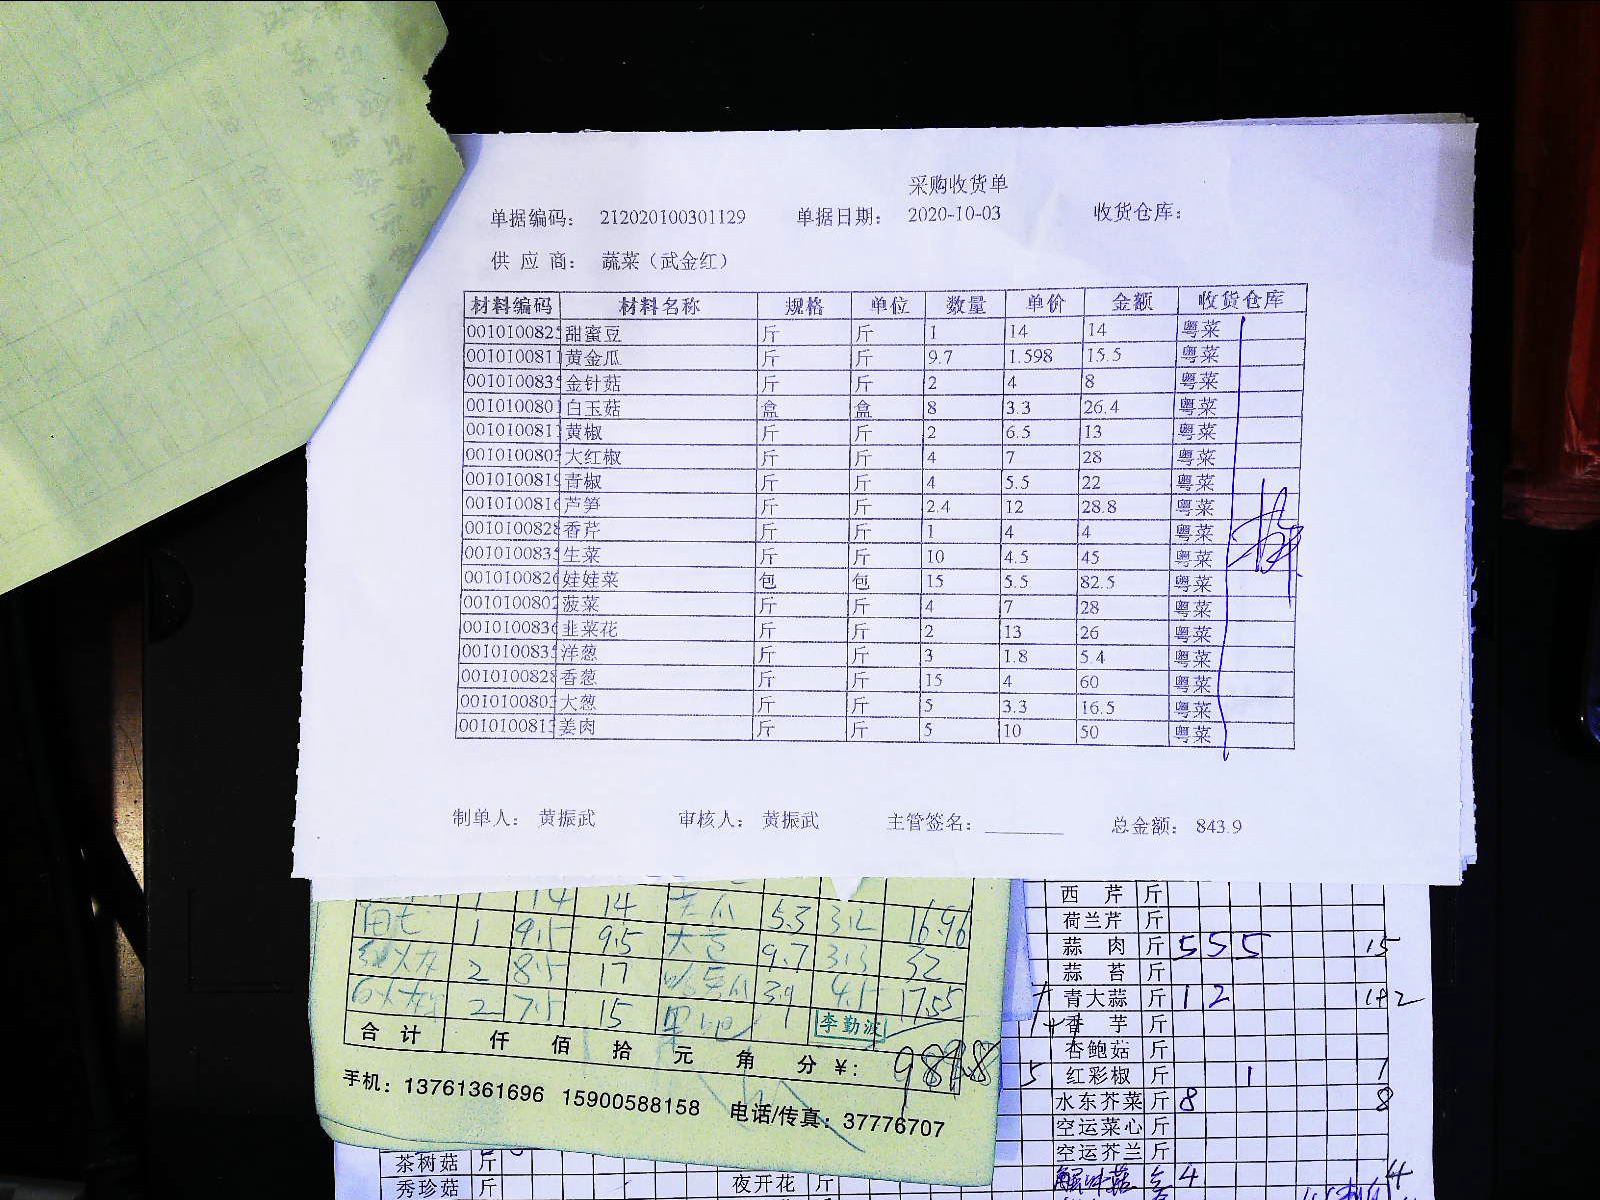 采购收货单
单据编码： 212020100301129 单据日期： 2020-10-03 收货仓库：
供 应 商： 蔬菜（武金红）
材料编码 材料名称 规格 单位 数量 单价 金额 收货仓库
0010100825 甜蜜豆 斤 斤 1 14 14 粤菜
0010100811 黄金瓜 斤 斤 9.7 1.598 15.5 粤菜
0010100835 金针菇 斤 斤 2 4 8 粤菜
0010100801 白玉菇 盒 盒 8 3.3 26.4 粤菜
001010081 黄椒 斤 斤 2 6.5 13 粤菜
001010080 大红椒 斤 斤 4 7 28 粤菜
0010100819 青椒 斤 斤 4 5.5 22 粤菜
0010100816 芦笋 斤 斤 2.4 12 28.8 粤菜
0010100828 香芹 斤 斤 1 4 4 粤菜
001010083 生菜 斤 斤 10 4.5 45 粤菜
0010100826 娃娃菜 包 包 15 5.5 82.5 粤菜
0010100802 菠菜 斤 斤 4 7 28 粤菜
0010100836 韭菜花 斤 斤 2 13 26 粤菜
001010083 洋葱 斤 斤 3 1.8 5.4 粤菜
0010100828 香葱 斤 斤 15 4 60 粤菜
001010080 大葱 斤 斤 5 3.3 16.5 粤菜
001010081 姜肉 斤 斤 5 10 50 粤菜
制单人： 黄振武 审核人： 黄振武 主管签名：________ 总金额： 843.9
1 14 14 5.3 3.2 16.96
1 9.5 9.5 9.7 3.3 32
2 8.5 17 3.9 4.5 17.55
2 7.5 15 李勤波
合 计 仟 佰 拾 元 角 分 ¥:
手机：13761361696 15900588158 电话/传真：37776707
西 芹 斤
荷兰芹 斤
蒜 肉 斤 5 5 5 15
蒜 苔 斤
青大蒜 斤 1 2 1+2
香 芋 斤
杏鲍菇 斤
5 红彩椒 斤 1 1
水东芥菜 斤 8 8
空运菜心 斤
空运芥兰 斤
4 4
茶树菇 斤
秀珍菇 斤 夜开花 斤